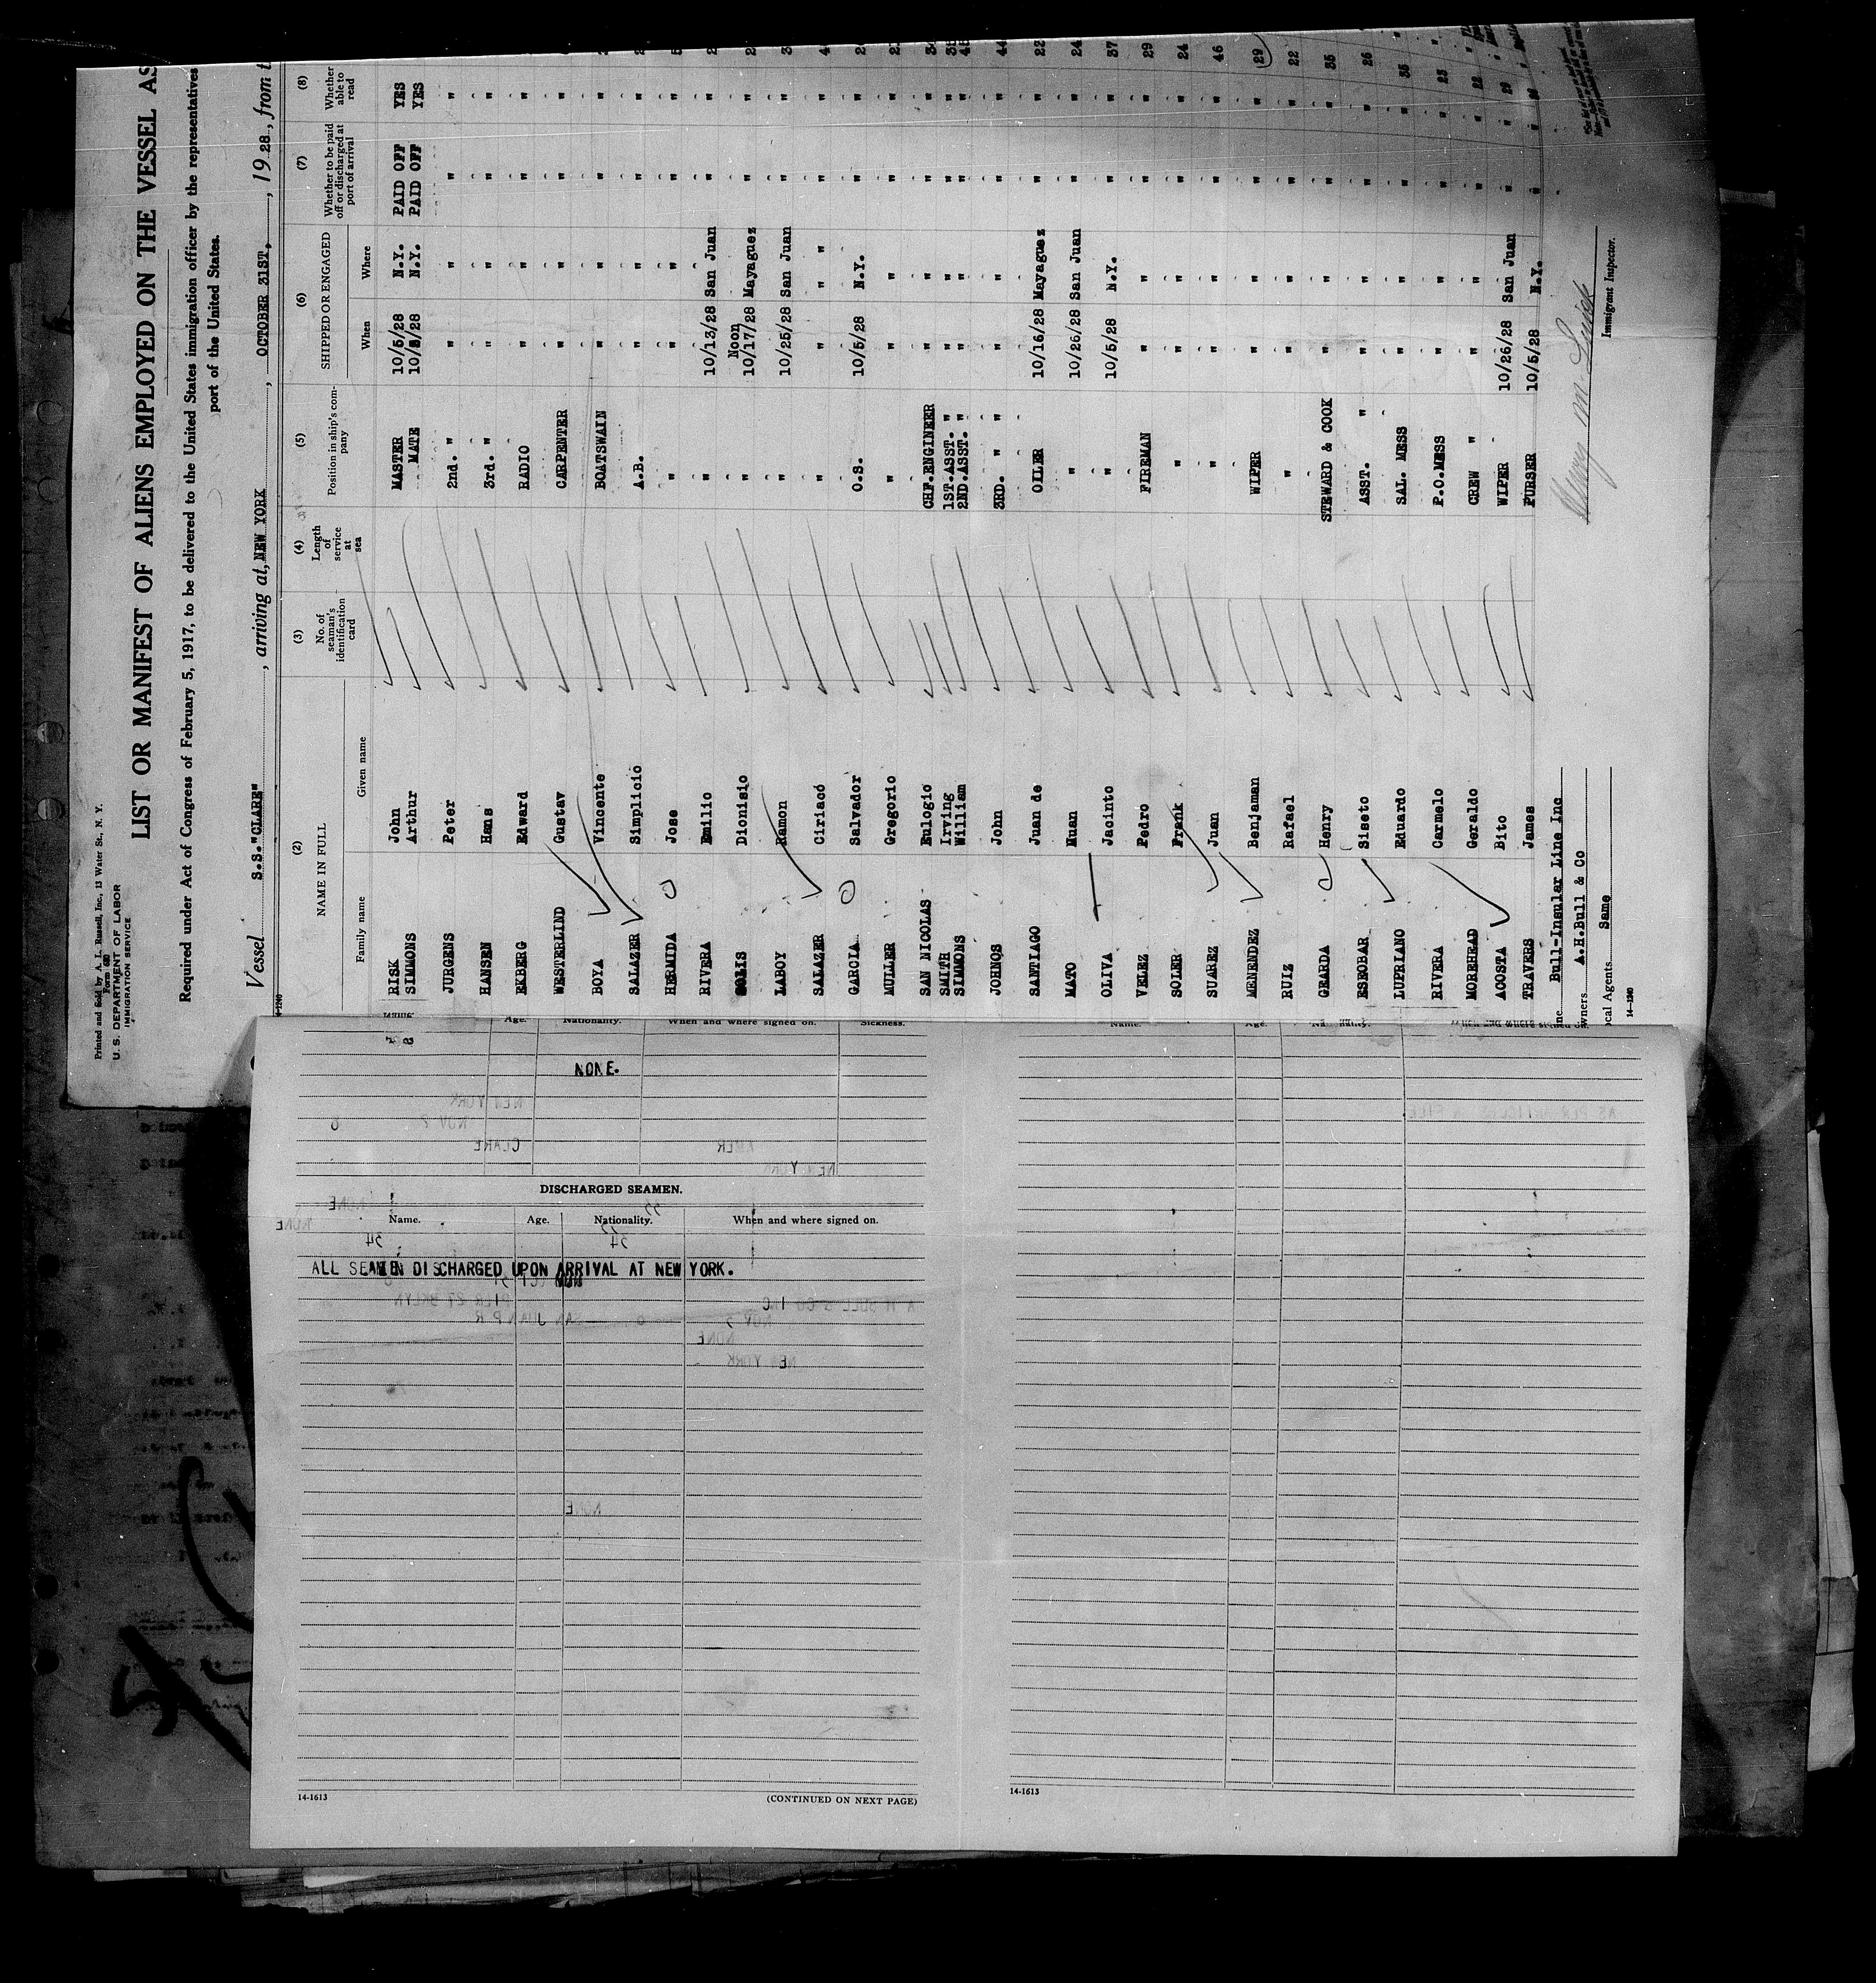 Printed and Sold by A. L. Russell, Inc., 13 Water St., N. Y.
Form 680
U. S. DEPARTMENT OF LABOR
IMMIGRATION SERVICE
LIST OR MANIFEST OF ALIENS EMPLOYED ON THE VESSEL AS
Required under Act of Congress of February 5, 1917, to be delivered to the United States immigration officer by the representatives
port of the United States.
Vessel S.S."CLARE", arriving at, NEW YORK, OCTOBER 31ST., 1928, from t
(2) (3) (4) (5) (6) (7) (8)
NAME IN FULL No. of seaman's identification card Length of service at sea Position in ship's company SHIPPED OR ENGAGED Whether to be paid off or discharged at port of arrival Whether able to read
Family name Given name When Where
RISK John MASTER 10/5/28 N.Y. PAID OFF YES
SIMMONS Arthur MATE 10/5/28 N.Y. PAID OFF YES
JURGENS Peter 2nd. " " " " "
HANSEN Hans 3rd. " " " " "
EKBERG Edward RADIO " " " "
WESTERLIND Gustav CARPENTER " " " "
BOYA Vincente BOATSWAIN " " " "
SALAZER Simplicio A.B. " " " "
HERMIDA Jose " " " " "
RIVERA Emilio " 10/13/28 San Juan " "
SOLIS Dionisio " Noon 10/17/28 Mayaguez " "
LABOY Ramon " 10/25/28 San Juan " "
SALAZER Ciriacó " " " " " "
GARCIA Salvador O.S. 10/5/28 N.Y. " "
MULLER Gregorio " " " " "
SAN NICOLAS Eulogio CHF.ENGINEER " " " "
SMITH Irving 1ST.ASST. " " " " "
SIMMONS William 2ND.ASST. " " " " "
JOHNOS John 3RD. " " " " " " 44
SANTIAGO Juan de OILER 10/16/28 Mayaguez " " 22
MATO Nuan " 10/26/28 San Juan " " 24
OLIVA Jacinto " 10/5/28 N.Y. " " 37
VELEZ Pedro FIREMAN " " " " 29
SOLER Frank " " " " " 24
SUAREZ Juan " " " " 46
MENENDEZ Benjaman WIPER " " " " 29
RUIZ Rafael " " " " " 22
GEARDA Henry STEWARD & COOK " " " " 35
ESEOBAR Siseto ASST. " " " " " 26
LUPRIANO Eduardo SAL. MESS " " " " 35
RIVERA Carmelo P.O.MESS " " " " 23
MOREHEAD Geraldo CREW " " " " " 22
ACOSTA Bito WIPER 10/26/28 San Juan " " 29
TRAVERS James PURSER 10/5/28 N.Y. " "
Bull-Insular Line Inc
wners A.H.Bull & Co
ocal Agents Same
14-1240
Immigrant Inspector.
Age. Nationality. When and where signed on. Sickness.
NONE.
DISCHARGED SEAMEN.
Name. Age. Nationality. When and where signed on.
ALL SEAMEN DISCHARGED UPON ARRIVAL AT NEW YORK.
14-1613
(CONTINUED ON NEXT PAGE)
Name. Age.
14-1613